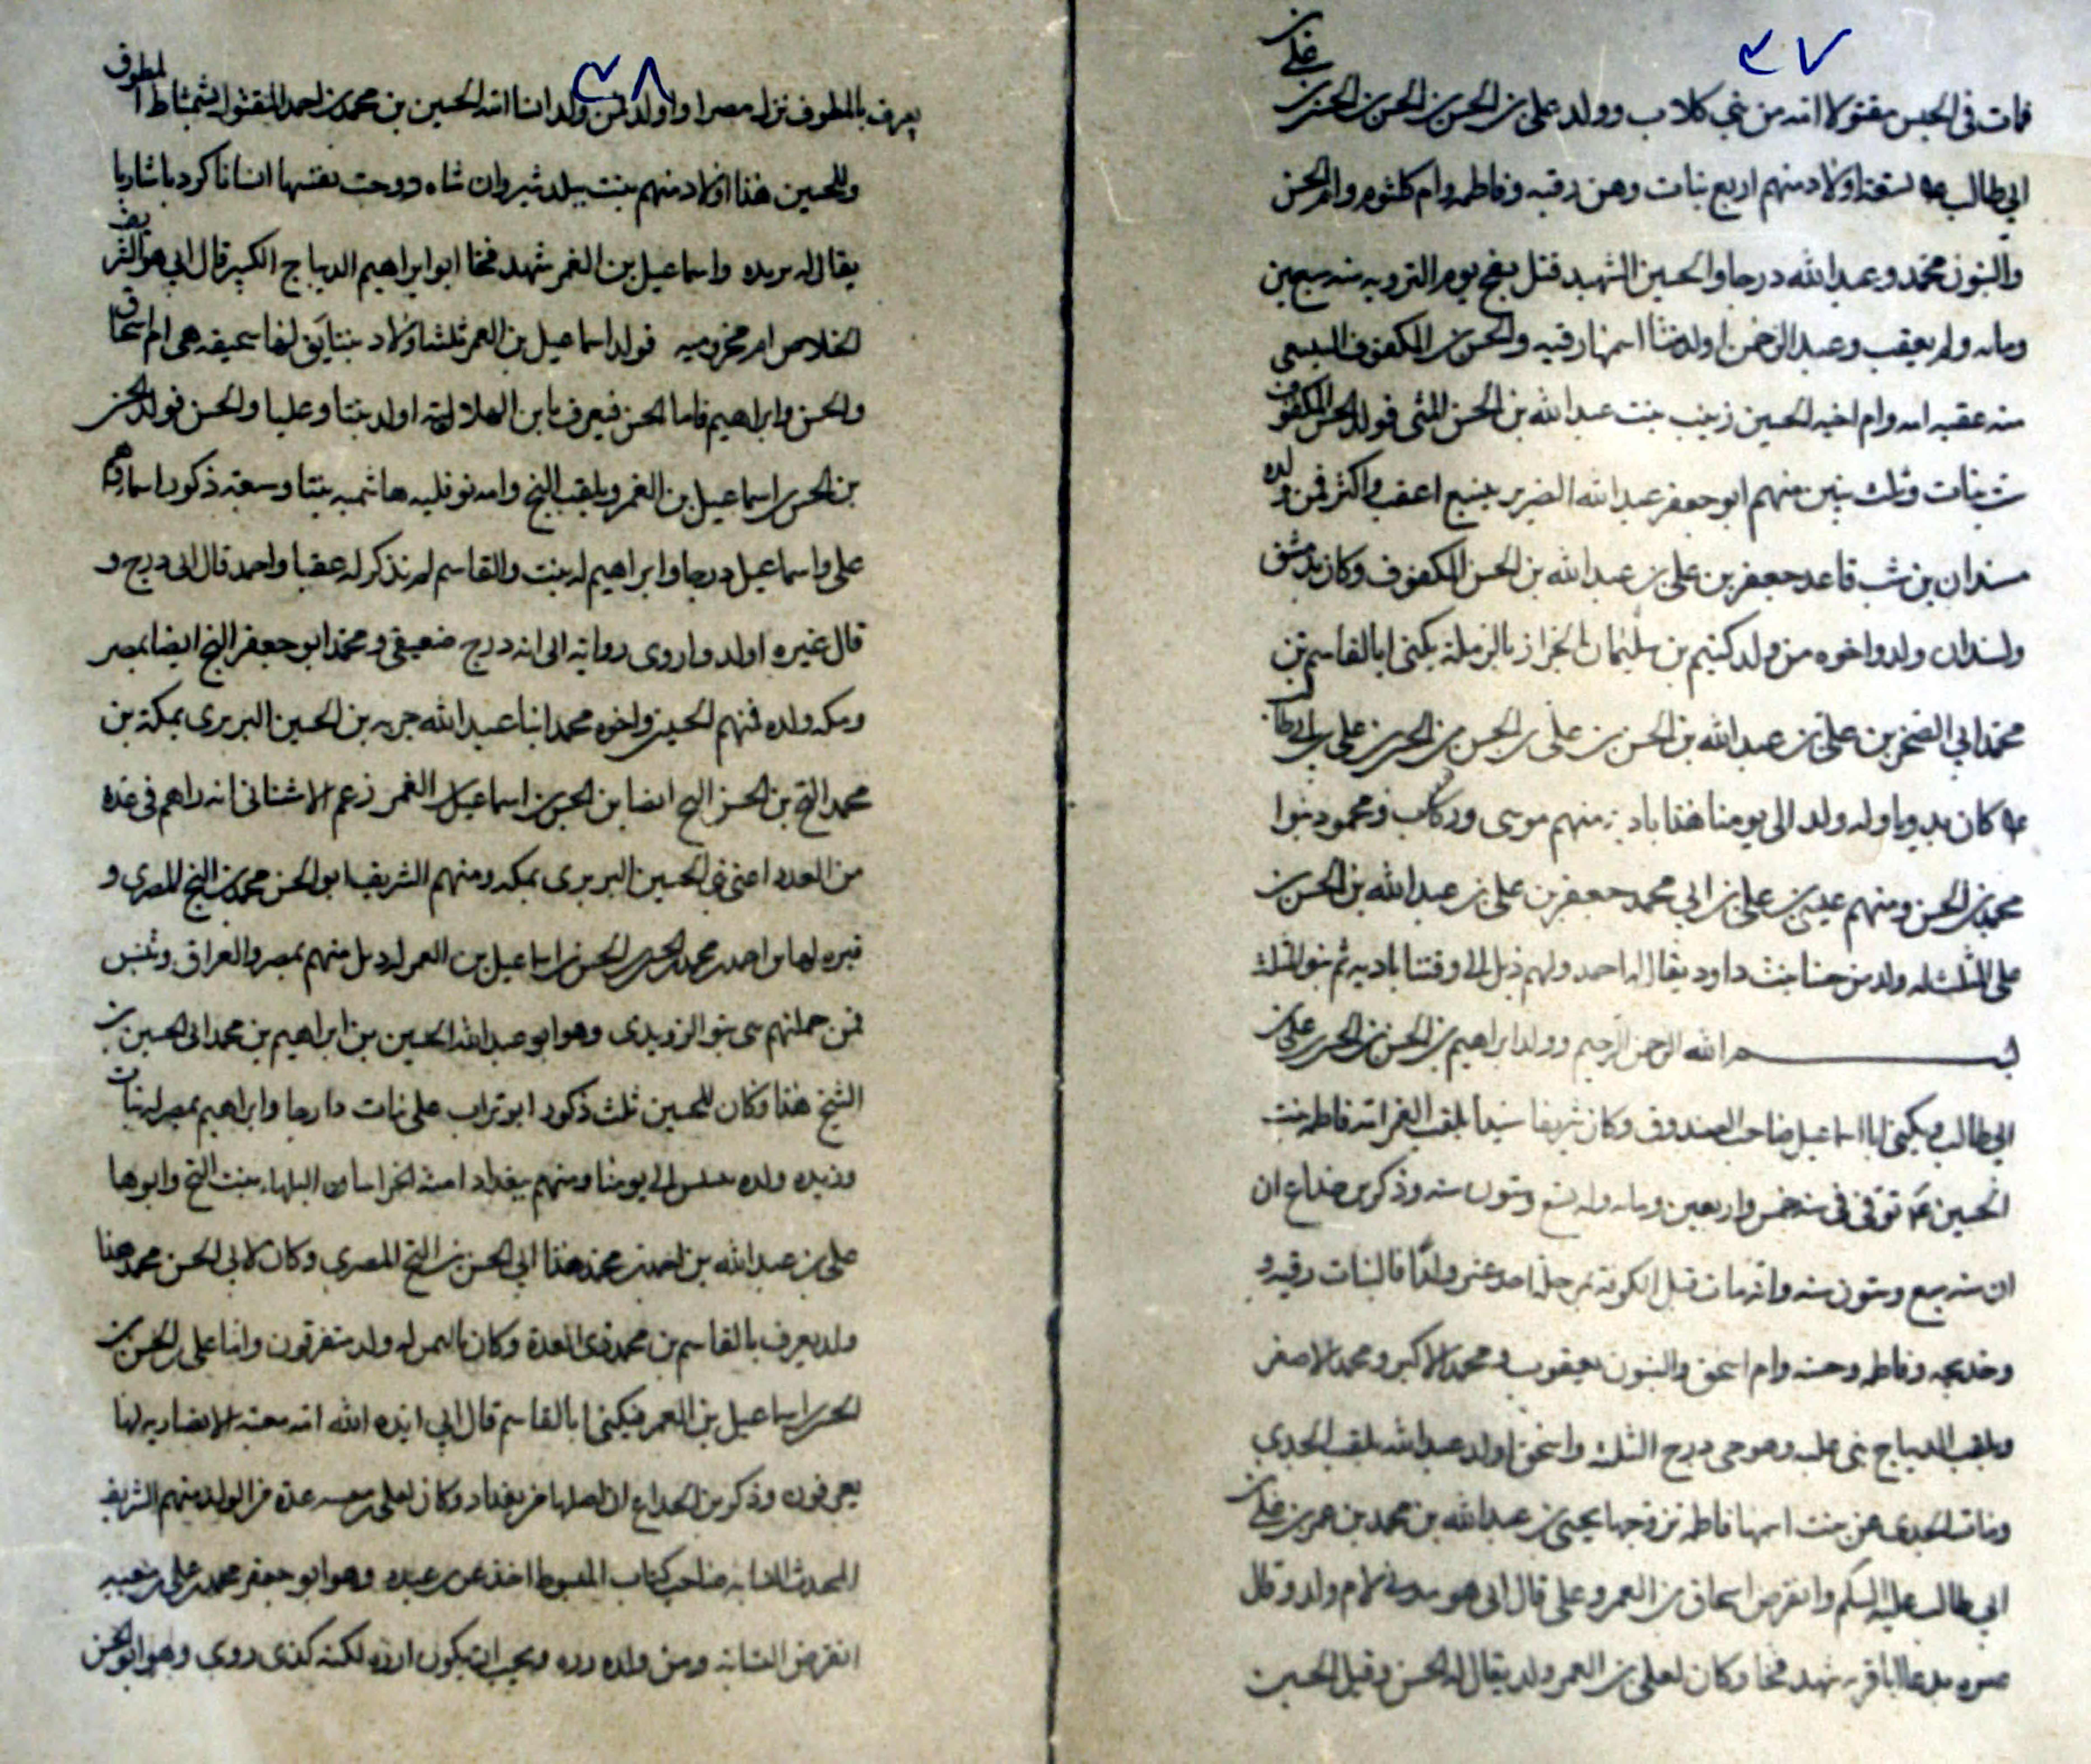 ٣٧
علي بن
فمات في الحبس مقتولا امه من بني كلاب وولد علي بن الحسن بن الحسن بن الحسن بن
ابي طالب ع تسعة اولاد منهم اربع بنات وهن رقيه وفاطمه وام كلثوم وام الحسن
والبنون محمد وعبد الله درجا والحسين الشهيد قتل بفخ يوم الترويه سنه سبعين
ومايه ولم يعقب وعبد الرحمن اولد بنتا اسمها رقيه والحسن المكفوف الينبعي
منه عقبه امه وام اخيه الحسين زينب بنت عبد الله بن الحسن المثنى فولد الحسن المكفوف
ست بنات وثلث بنين منهم ابو جعفر عبد الله الضرير بينبع اعقب واكثر فمن ولده
قاعد جعفر بن علي بن عبد الله بن الحسن المكفوف وكان بدمشق
ولد واخوه من ولد بن سليمان الخراز بالرملة يكنى ابا القاسم بن
محمد ابي الضخر بن علي بن عبد الله بن الحسن بن علي بن الحسن بن الحسن بن علي بن ابي طالب
ع كان بدويا وله ولد الى يومنا هذا بادية منهم موسى وركاب ومحمود بنوا
محمد بن الحسن ومنهم عيسى بن علي بن ابي محمد جعفر بن علي بن عبد الله بن الحسن بن
علي المثلث له ولد من حسنا بنت داود يقال له احمد ولهم ذيل الى وقتنا بادية ثم بنو المثلث
بسم الله الرحمن الرحيم وولد ابراهيم بن الحسن بن الحسن بن علي بن
ابي طالب ويكنى ابا اسماعيل صاحب الصندوق وكان شريفا سيدا يلقب الغمر امه فاطمه بنت
الحسين ع توفي في سنه خمس واربعين ومايه وله تسع وستون سنه وذكر بن خداع ان
ان سنه سبع وستون سنه وانه مات قبل الكوفة احد عشر ولدا فالبنات رقيه و
وخديجه وفاطمه وحسنه وام اسحق والبنون يعقوب ومحمد الاكبر ومحمد الاصغر
ويلقب الديباج بنى عليه وهو حي درج الثلثه واسحق اولد عبد الله يلقب الجدي
وبنات الجدي هن بنت اسمها فاطمه تزوجها يحيى بن عبد الله بن محمد بن عمر بن علي بن
ابي طالب عليه السلم وانقرض اسحاق بن الغمر وعلي قال ابي هو لام ولد وقال
غيره الباقر به شهد فخا وكان لعلي بن الغمر ولد يقال له الحسن وقيل الحسين
٣٨
يعرف بالمطوف نزل مصرا واولد فمن ولد ابنا ابنه الحسين بن محمد بن احمد المقتول بشمشاط ابن المطوف
وللحسين هذا اولاد منهم بنت ببلد شيروان شاه زوجت نفسها انسانا كرديا شاربا
يقال له بريده واسماعيل بن الغمر شهد فخا ابو ابراهيم الديباج الكبير قال ابي هو الشريف
الخلاص امه مخزوميه فولد اسماعيل بن الغمر ثلثة اولاد بنتا يق لها سحيقه هي ام اسحاق
والحسن وابراهيم فاما الحسن فيعرف بابن الهلالية اولد بنتا وعليا والحسن فولد الحسن
بن الحسن بن اسماعيل بن الغمر ويلقب التج وامه نوفليه هاشميه بنتا وسبعة ذكور اسماؤهم
علي واسماعيل درجا وابراهيم له بنت والقاسم لم نذكر له عقبا واحمد قال ابي درج و
قال غيره اولد واروى رواية ابي انه درج ضعيفي ومحمد ابو جعفر التج ايضا بمصر
ومكه ولده فمنهم الحسين واخوه محمد ابنا عبد الله بن الحسين البربري بمكة بن
محمد التج بن الحسن التج ايضا بن الحسن بن اسماعيل بن الغمر زعم الاشناني انه راهم في عدة
من العدد اعني بني الحسين البربري بمكه ومنهم الشريف ابو الحسن محمد بن التج المصري و
قبره بها بن احمد بن محمد بن الحسن بن الحسن بن اسماعيل بن الغمر له ذيل منهم بمصر والعراق وتنيس
فمن جملتهم بنو الزويدي وهو ابو عبد الله الحسين بن ابراهيم بن محمد ابي الحسين بن
الشيخ هذا وكان للحسين ثلث ذكور ابو تراب علي مات دارجا وابراهيم بمصر له بنات
وزيد ولده الى يومنا ومنهم ببغداد البلهاء بنت التج وابوها
علي بن عبد الله بن احمد بن محمد هذا ابي الحسن بن التج المصري وكان لابي الحسن محمد هذا
ولد يعرف بالقاسم بن محمد ذي العدة وكان باليمن له ولد متفرقون واما علي بن الحسن بن
الحسن بن اسماعيل بن الغمر فيكنى ابا القاسم قال ابي ايده الله امه معية الانصاريه بها
يعرفون وذكر بن الخداع ان اصلها من بغداد وكان لعلي بن معيه عدة من الولد منهم الشريف
المحدث النسابه صاحب كتاب المبسوط اخذ عن بن عبده وهو ابو جعفر محمد بن علي بن معيه
انقرض النسابه ومن ولده وهو ابو الحسن